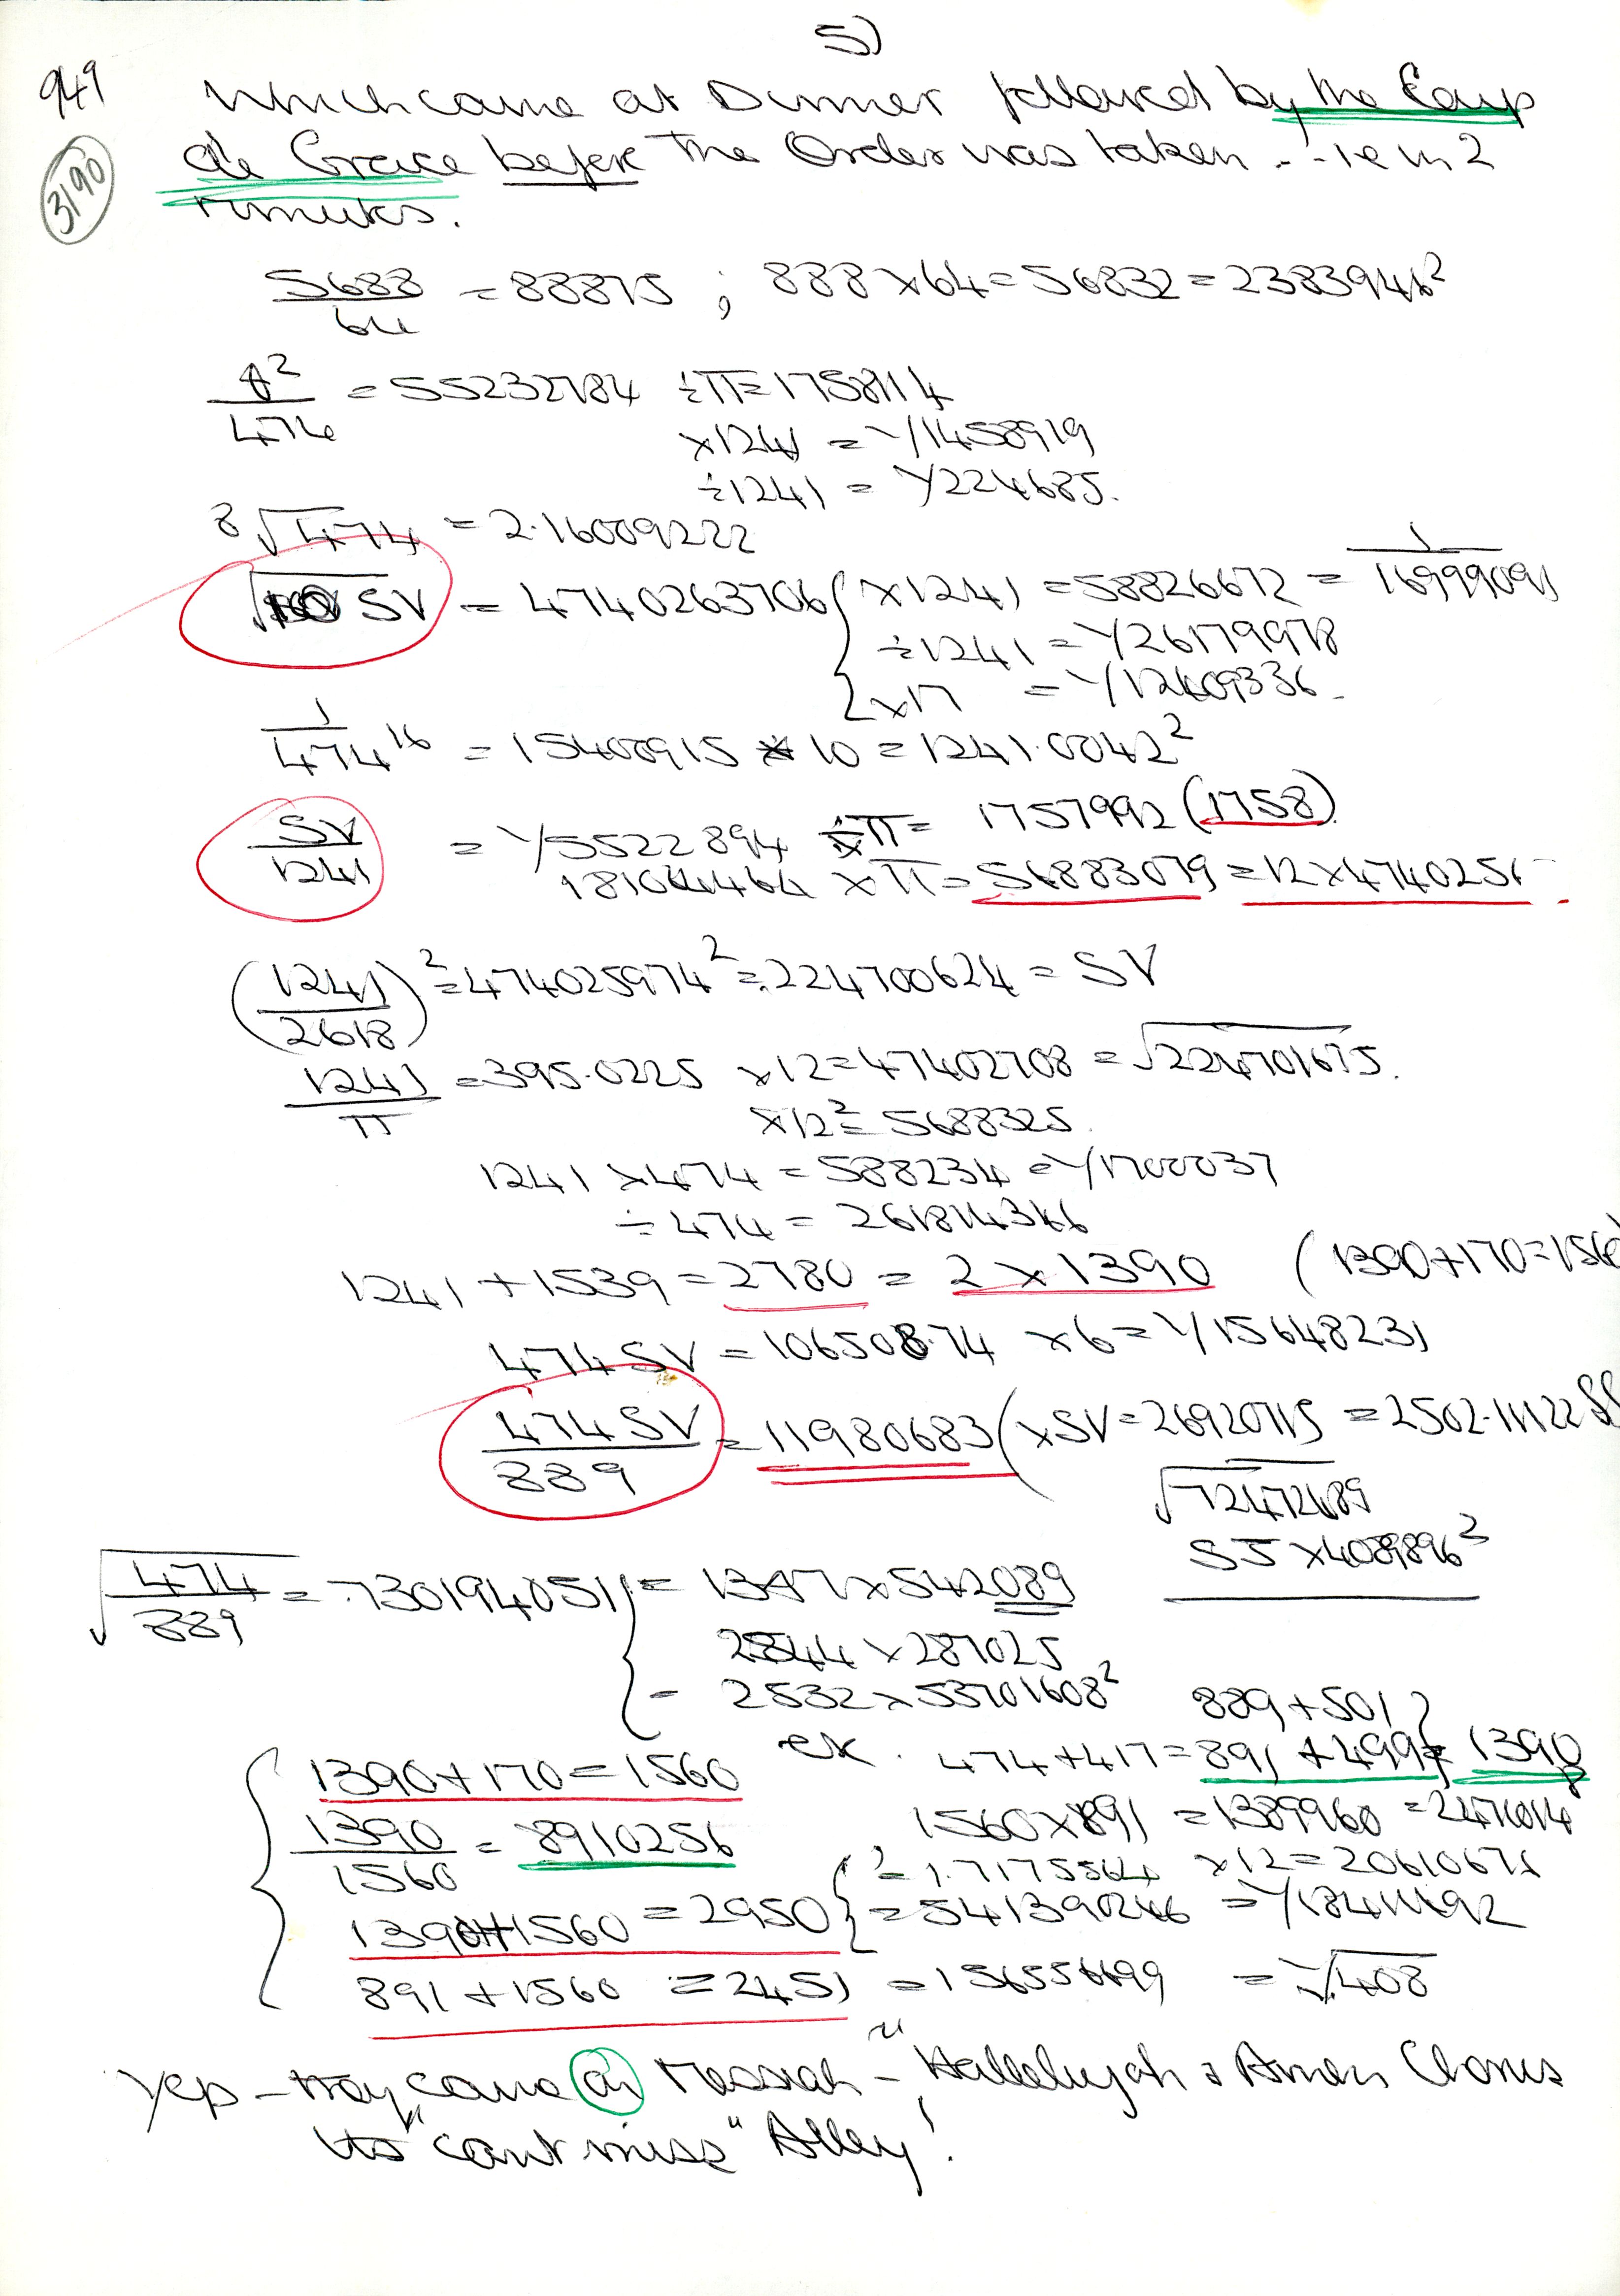 5)
949
3190
Which came at Dinner followed by the Coup
de Grace before the Order was taken - ie in 2
minutes.
5688/64 = 88875 ; 888 × 64 = 56832 = 2383946²
/474 = 55232784 ÷ π = 1758114
× 1241 = 1/1458919
÷ 1241 = 1/224685.
8√474 = 2.16009222
SV = 4740263706 { × 1241 = 58826672 = 1/16999091
÷ 1241 = 1/26179978
× 17 = 1/12409336
1/474¹⁶ = 15400915 × 10 = 1241.0042²
SV/1241 = 1/5522894 ÷π = 1757992 (1758)
181064464 × π = 56883079 = 12 × 4740256
(1241/2618)² = 474025974² = 224700624 = SV
1241/π = 395.0225 × 12 = 47402708 = √224701675.
× 12² = 5688325.
1241 × 474 = 588234 = 1/1700037
÷ 474 = 261814346
1241 + 1539 = 2780 = 2 × 1390 (1390 + 170 = 1560
474 SV = 106508.74 × 6 = 1/15648231
474 SV/889 = 11980683 ( × SV = 26920715 = 2502.11122
√72472689
55 × 4089896²
√474/889 = .7301940511 } = 1347 × 542089
2544 × 287025
= 2532 × 53701608²
889 + 501 }
ex. 474 + 417 = 891 + 499 } = 1390
{ 1390 + 170 = 1560
1560 × 891 = 1389960 = 2471014
1390/1560 = 8910256
² = 1.7175564 × 12 = 20610676
1390 + 1560 = 2950 } = 541390246 = 1/18411492
891 + 1560 = 2451 = 156556699 = √.408
Yep - they came on Messiah - "Hallelujah & Amen Chorus
its "cant miss" Alley!